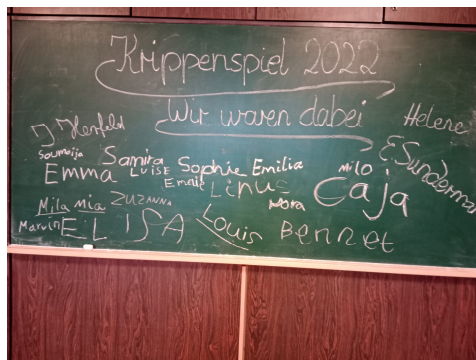 Krippenspiel 2022
Wir waren dabei
Helene
J. Herfeld
E. Sunderma
Soumaija Samira Sophie Emilia Milo
Emma Luise Emelie Linus Caja
Mila Mia ZUZANNA Nora
Marvin ELISA Louis Bennet